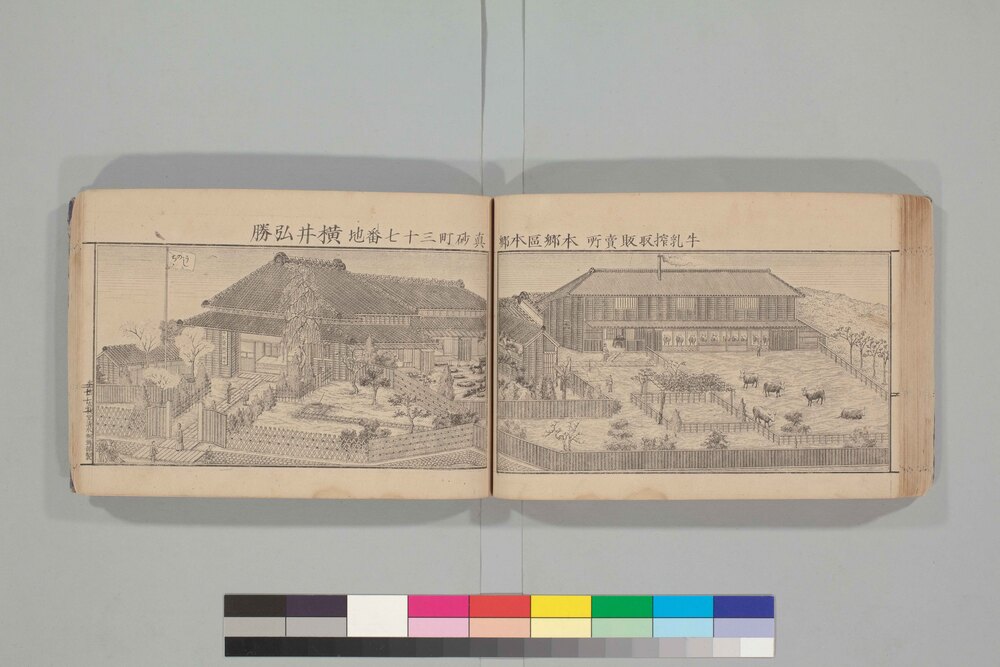 牛乳搾取販賣所 本郷區本郷真砂町三十七番地 横井弘勝